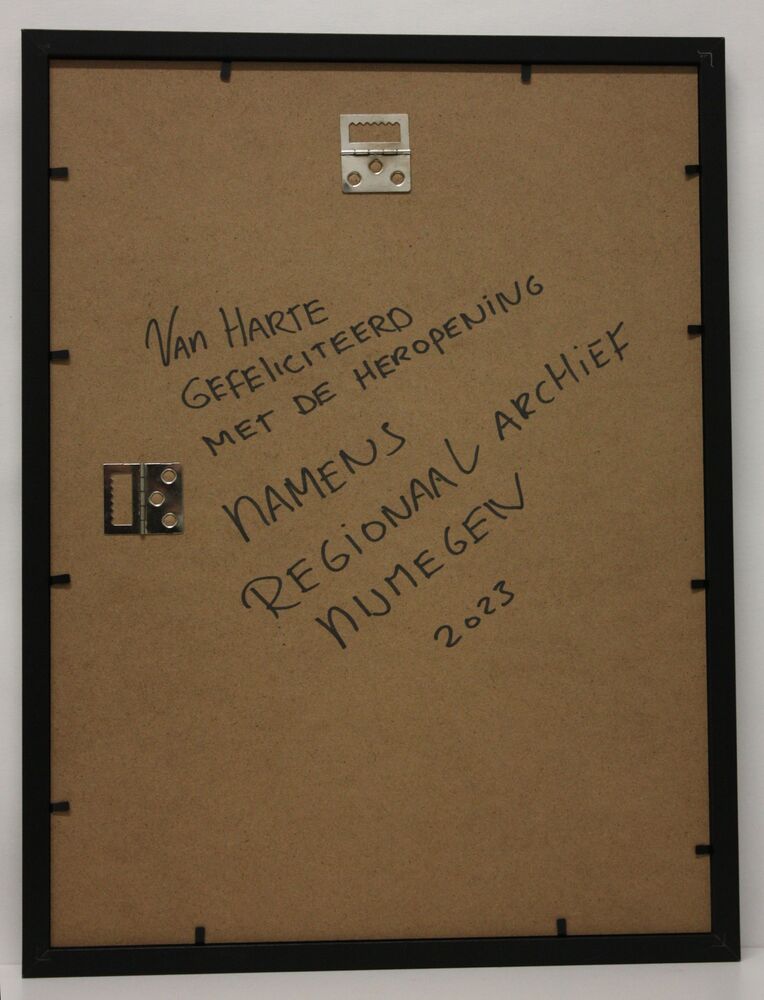 Van HARTE
GEFELICITEERD
MET DE HEROPENING
NAMENS
REGIONAAL ARCHIEF
NIJMEGEN
2023